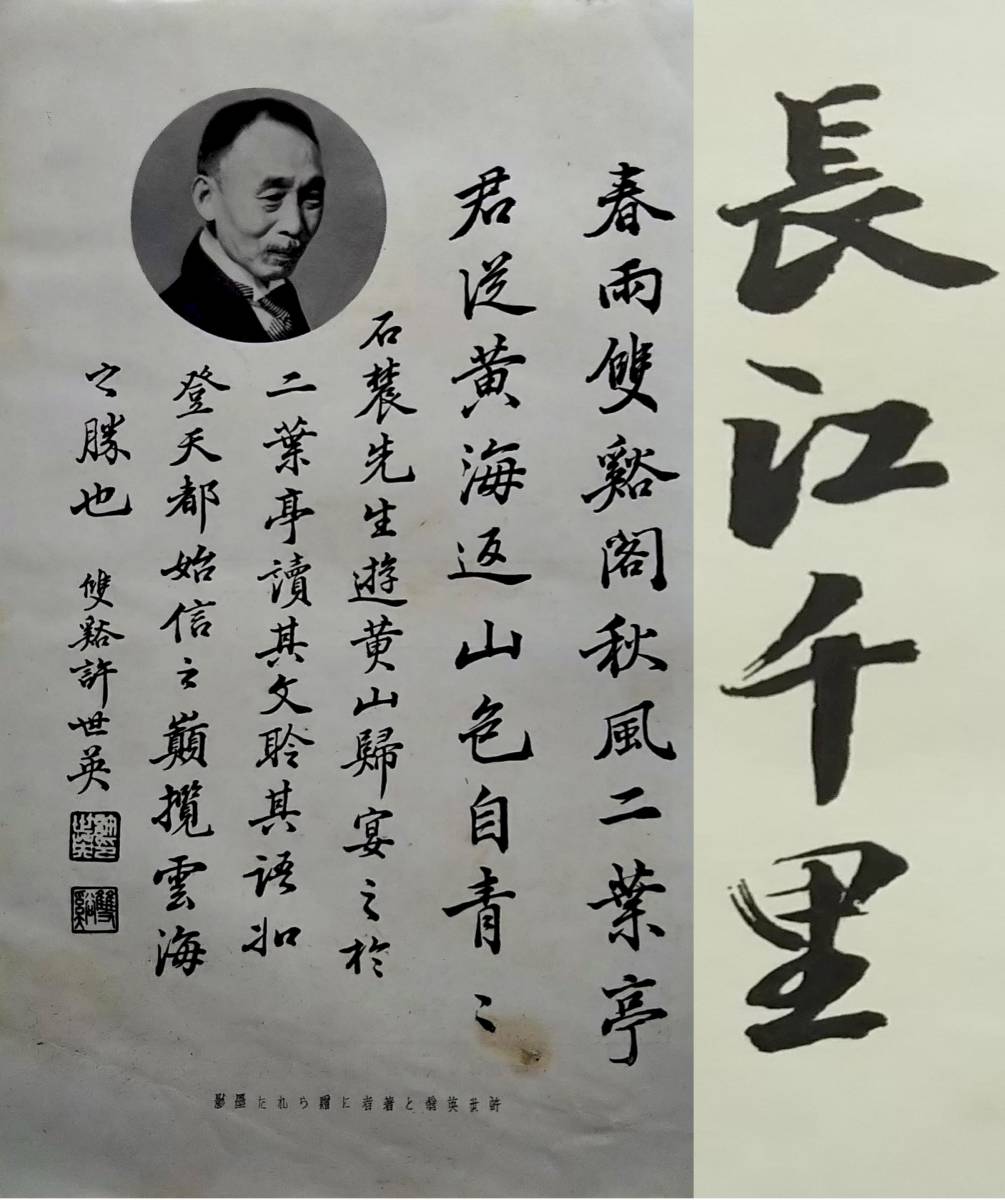 長江千里
春雨雙谿閣秋風二葉亭
君從黄海返山色自青〻
石農先生遊黄山歸宴之於
二葉亭讀其文聆其語如
登天都始信之巔攬雲海
之勝也
雙谿許世英
許世英印
雙谿
許世英翁と著者に贈られた墨影